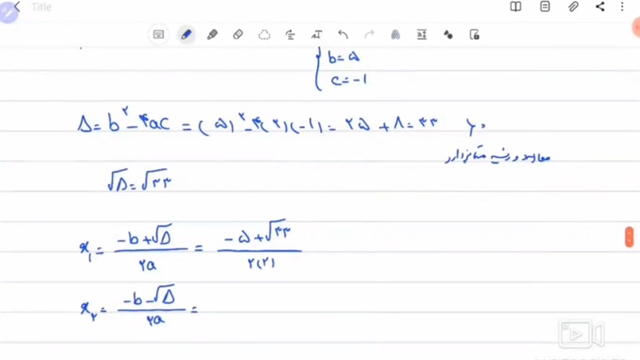 Title
b = ۵
c = -۱
Δ = b² - ۴ac = (۵)² - ۴(۲)(-۱) = ۲۵ + ۸ = ۳۳ > ۰
معادله دو ریشه متمایز دارد
√Δ = √۳۳
x₁ = (-b + √Δ) / ۲a = (-۵ + √۳۳) / ۲(۲)
x₂ = (-b - √Δ) / ۲a =